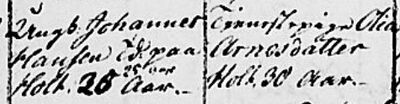 Ungk. Johannes
Hansen Eds paa
25 aar
Holt. 26 Aar.
Tjenestepige Olia
Arnesdatter
Holt 30 Aar.